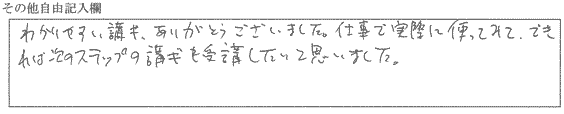 その他自由記入欄
わかりやすい講義、ありがとうございました。仕事で実際に使ってみて、でき
れば次のステップの講義を受講したいと思いました。